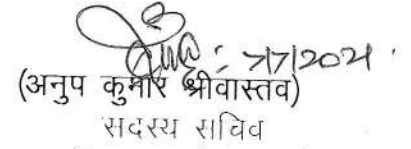 7/7/2021
(अनुप कुमार श्रीवास्तव)
सदस्य सचिव